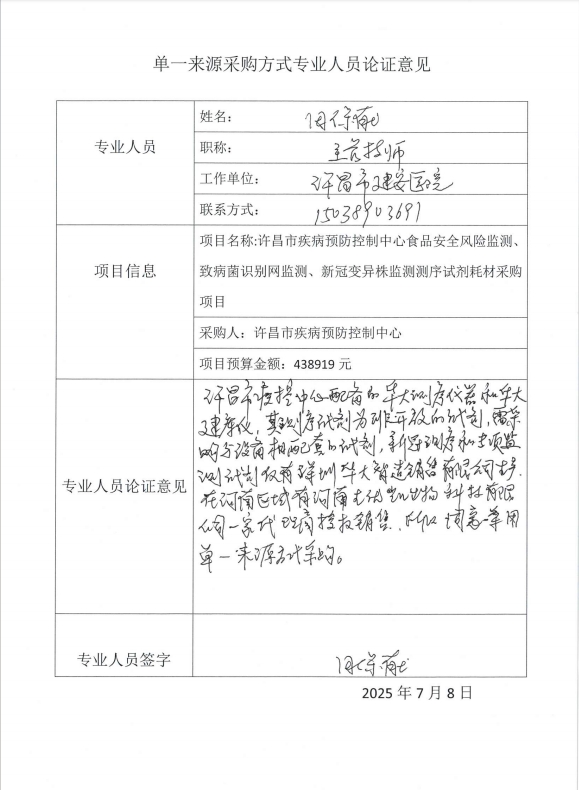 单一来源采购方式专业人员论证意见
专业人员
姓名：
职称： 主管技师
工作单位： 许昌市建安医院
联系方式： 15038903691
项目信息
项目名称:许昌市疾病预防控制中心食品安全风险监测、
致病菌识别网监测、新冠变异株监测测序试剂耗材采购
项目
采购人：许昌市疾病预防控制中心
项目预算金额：438919 元
专业人员论证意见
许昌市疾控中心配备的华大测序仪器和华大
建库仪，其测序试剂为开放的试剂，需采
购与设备相配套的试剂，新冠测序和专项监
测试剂仅有深圳华大智造销售有限公司生产.
在河南区域有河南生物科技有限
公司一家代理商授权销售，所以同意采用
单一来源方式采购。
专业人员签字
2025 年 7 月 8 日